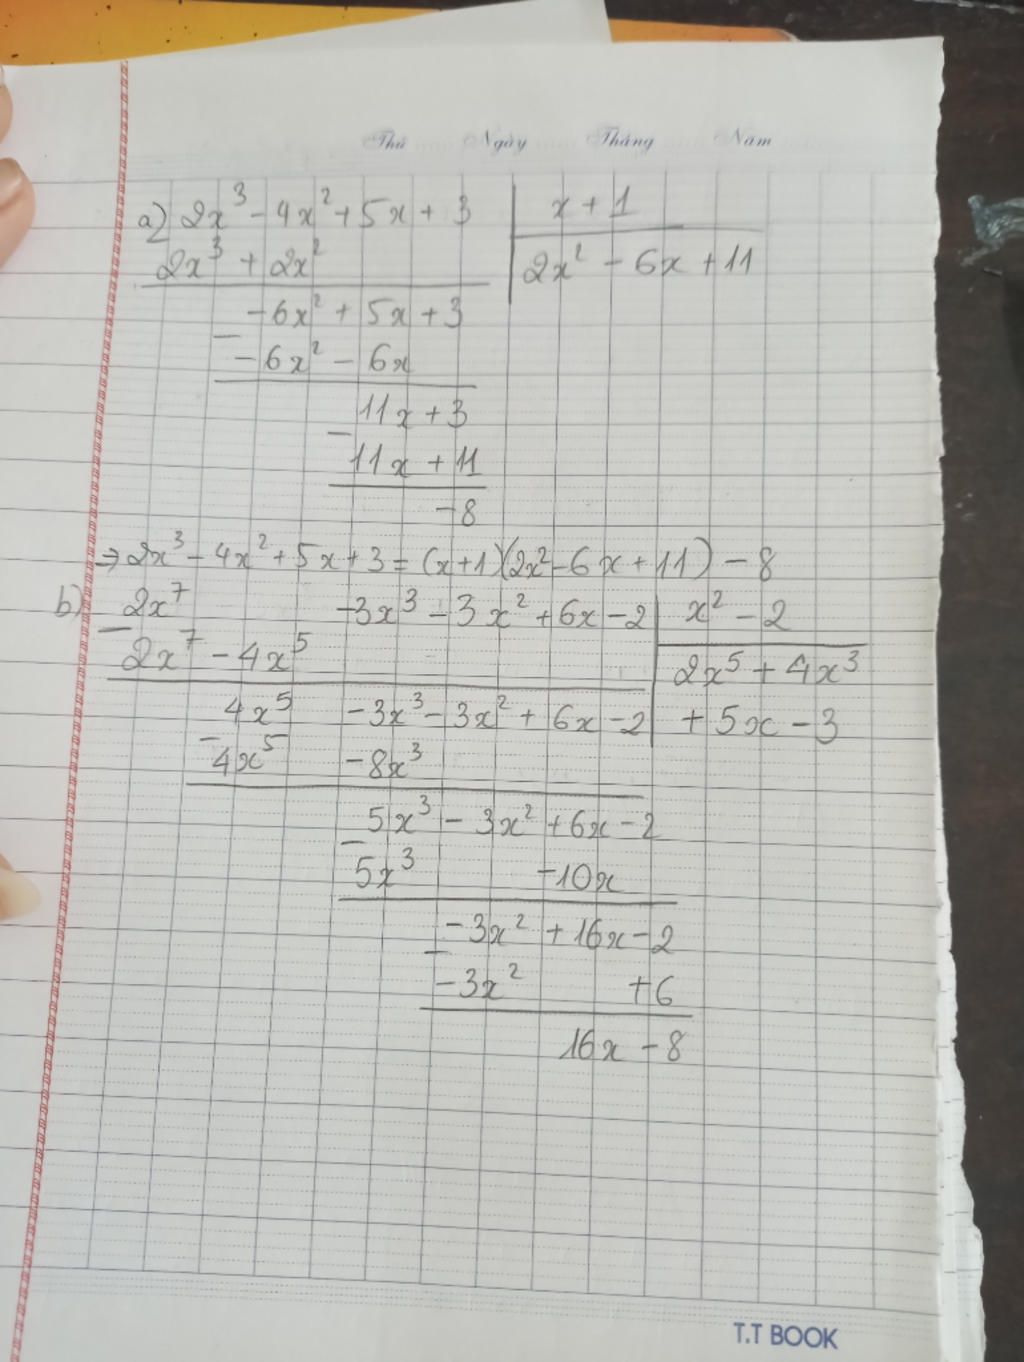 Thứ Ngày Tháng Năm
a) 2x³ - 4x² + 5x + 3 | x + 1
2x³ + 2x² | 2x² - 6x + 11
-6x² + 5x + 3
- -6x² - 6x
11x + 3
- 11x + 11
-8
→ 2x³ - 4x² + 5x + 3 = (x+1)(2x² - 6x + 11) - 8
b) 2x⁷ -3x³ - 3x² + 6x - 2 | x² - 2
- 2x⁷ - 4x⁵ | 2x⁵ + 4x³
4x⁵ -3x³ - 3x² + 6x - 2 | + 5x - 3
- 4x⁵ -8x³
5x³ - 3x² + 6x - 2
- 5x³ -10x
-3x² + 16x - 2
- -3x² + 6
16x - 8
T.T BOOK